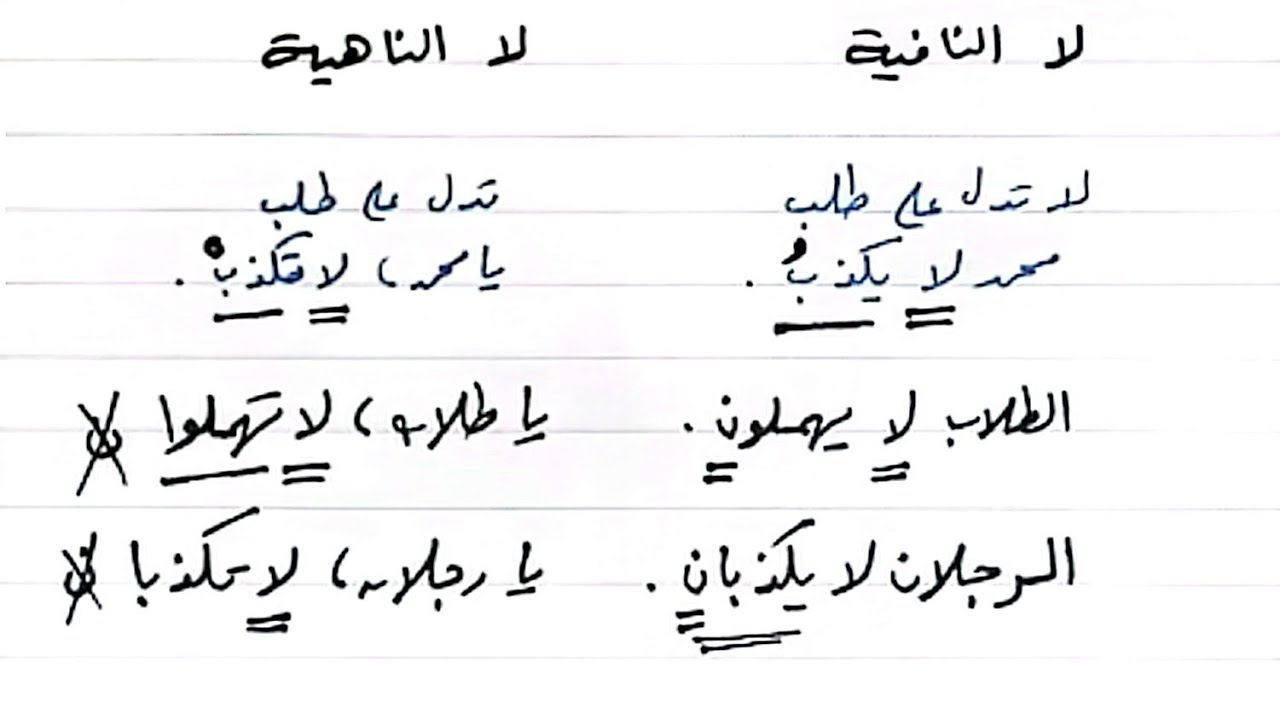 لا النافية لا الناهية
لا تدل على طلب تدل على طلب
محمد لا يكذبُ . يا محمد، لا تكذبْ .
الطلاب لا يهملون . يا طلاب، لا تهملوا ن
الرجلان لا يكذبان . يا رجلان، لا تكذبا ن